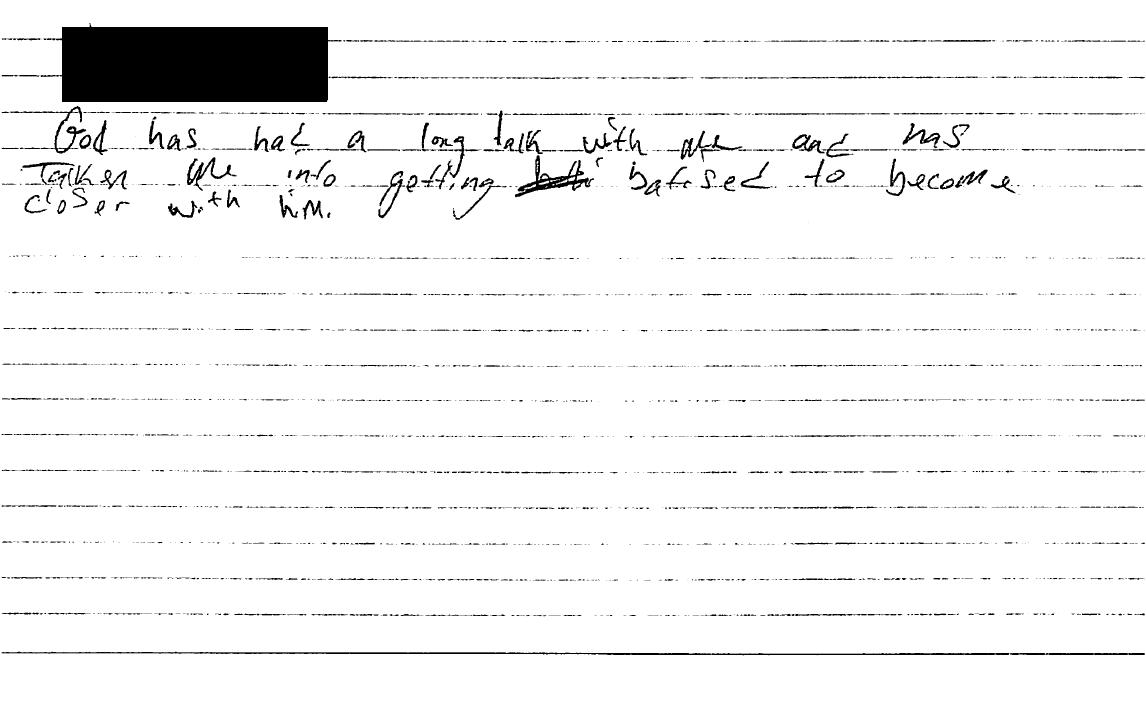 God has had a long talk with me and has
Talken me into getting batised to become
closer with him.